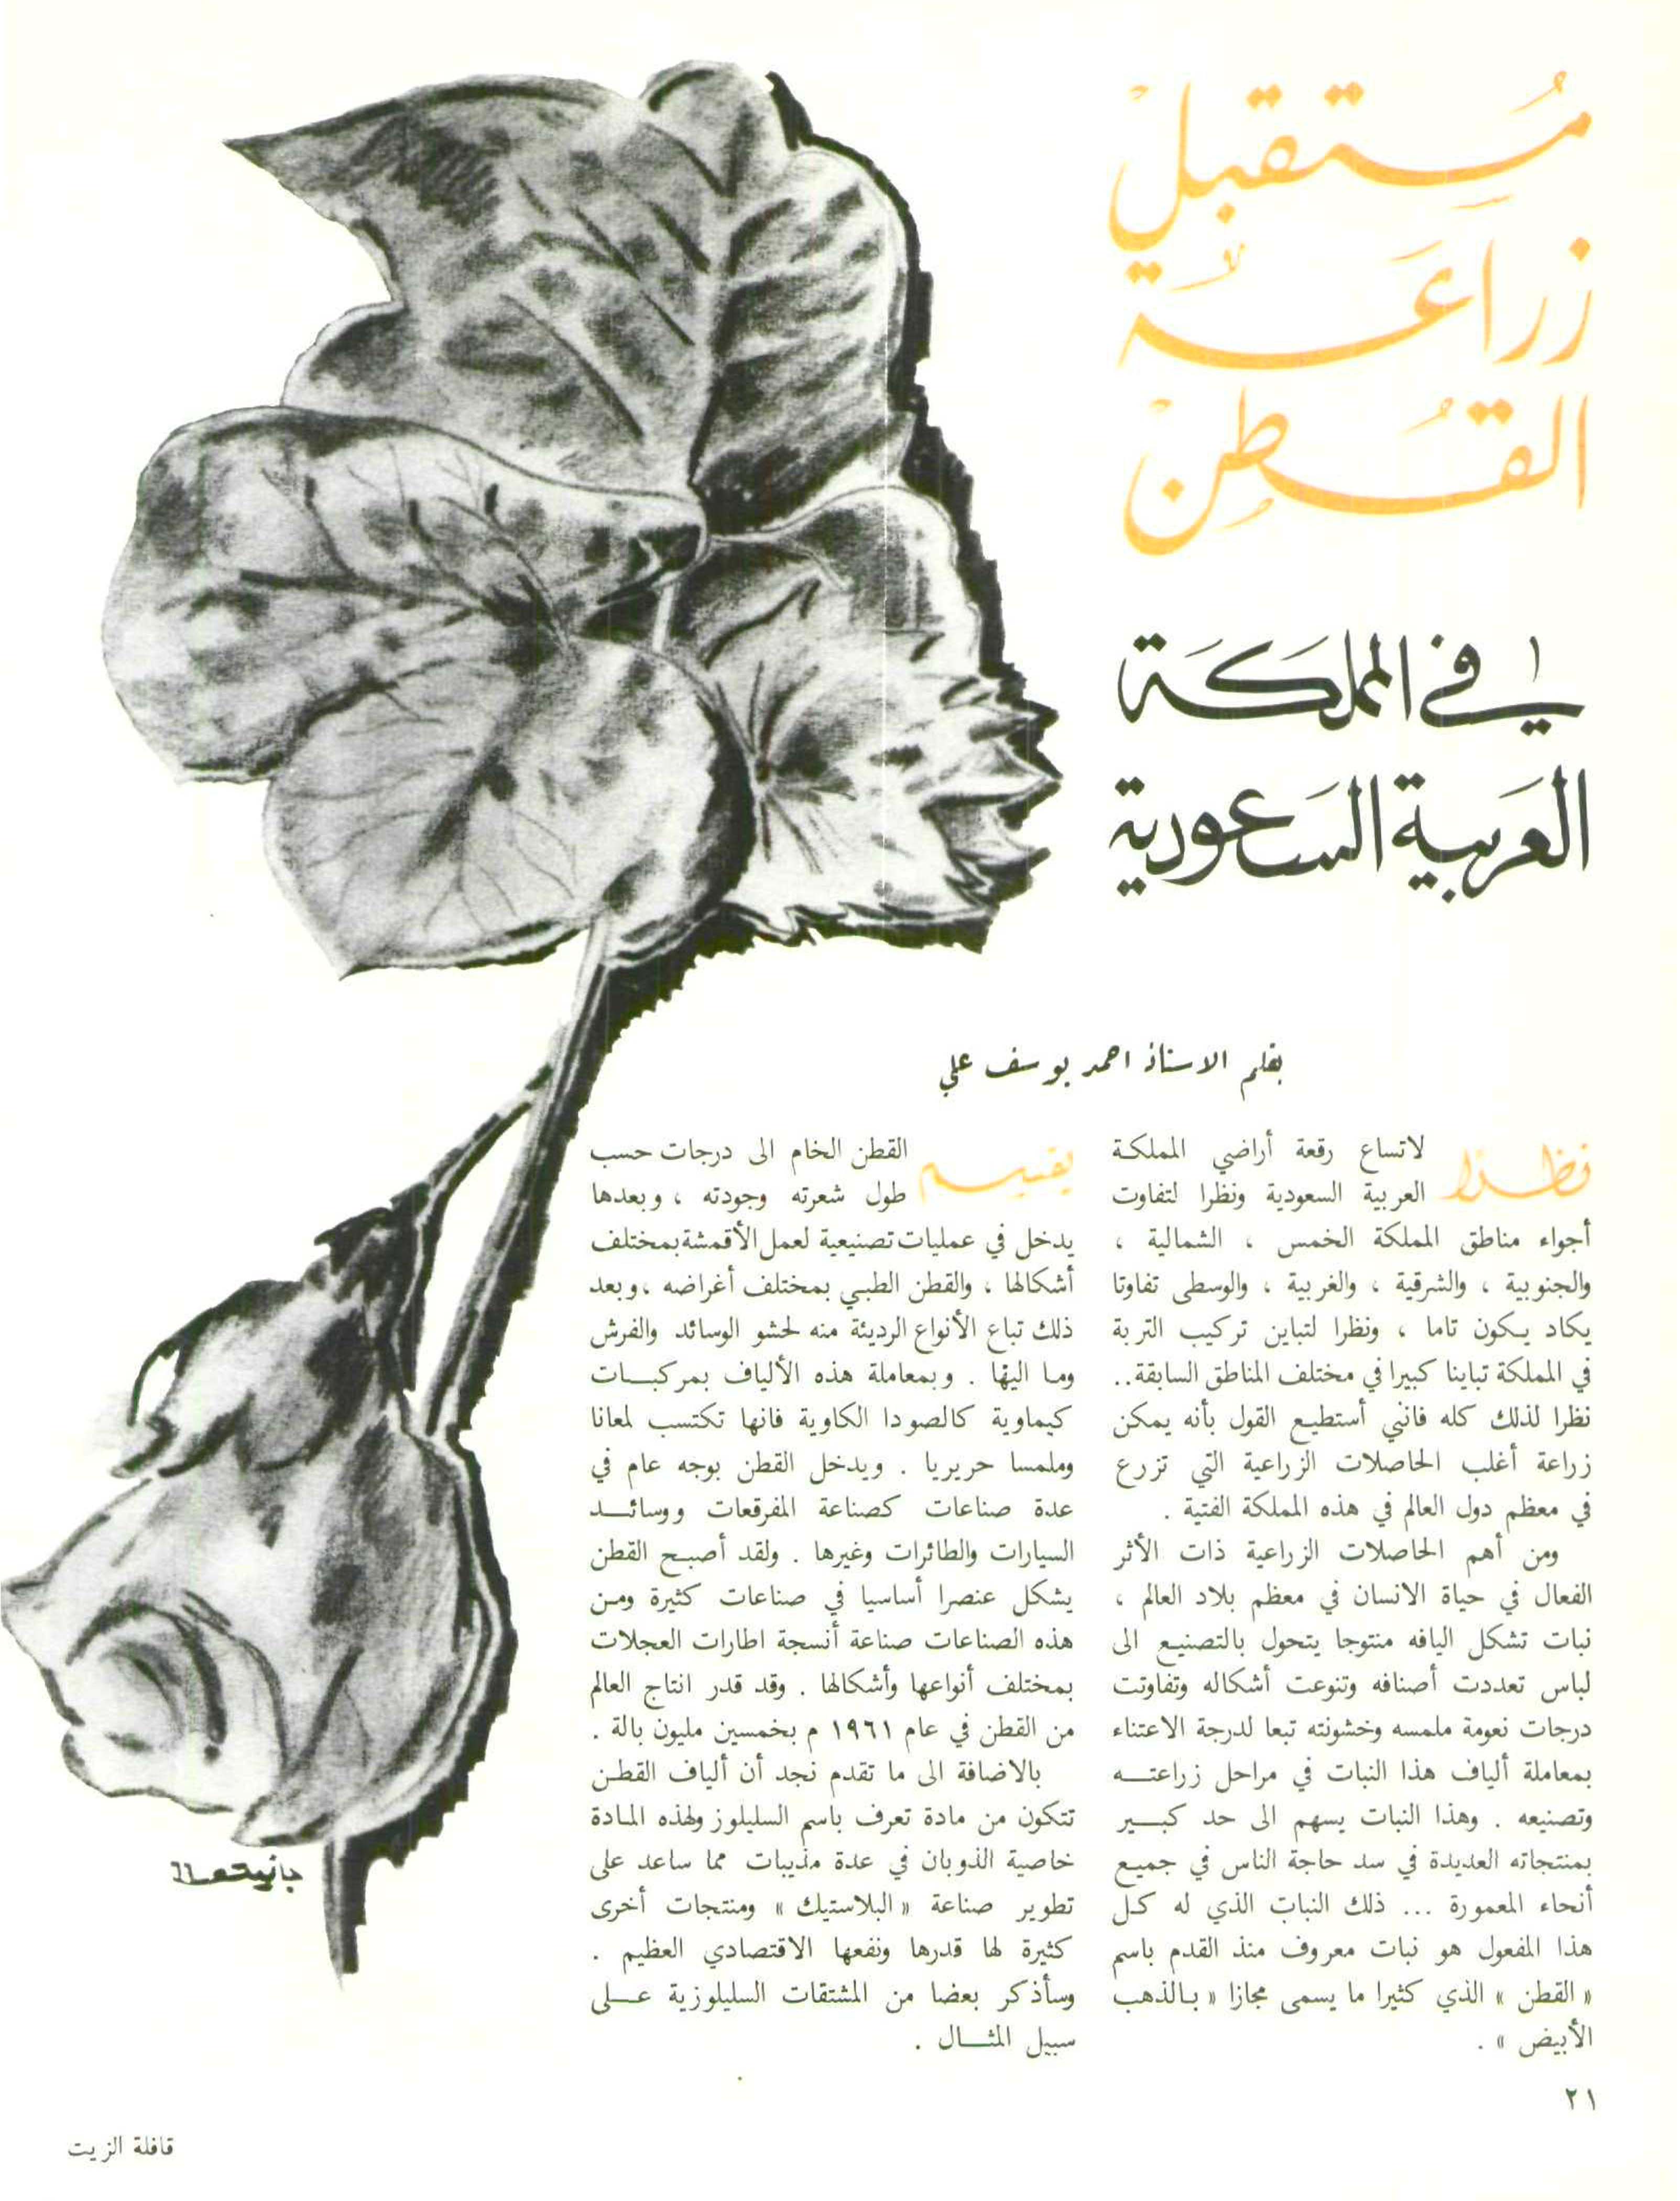 مُستقبل
زراعة
القُطن
في المملكة
العربية السعودية
بقلم الاستاذ احمد يوسف علي
نظرا لاتساع رقعة أراضي المملكة
العربية السعودية ونظرا لتفاوت
أجواء مناطق المملكة الخمس ، الشمالية ،
والجنوبية ، والشرقية ، والغربية ، والوسطى تفاوتا
يكاد يكون تاما ، ونظرا لتباين تركيب التربة
في المملكة تباينا كبيرا في مختلف المناطق السابقة..
نظرا لذلك كله فانني أستطيع القول بأنه يمكن
زراعة أغلب الحاصلات الزراعية التي تزرع
في معظم دول العالم في هذه المملكة الفتية .
ومن أهم الحاصلات الزراعية ذات الأثر
الفعال في حياة الانسان في معظم بلاد العالم ،
نبات تشكل اليافه منتوجا يتحول بالتصنيع الى
لباس تعددت أصنافه وتنوعت أشكاله وتفاوتت
درجات نعومة ملمسه وخشونته تبعا لدرجة الاعتناء
بمعاملة ألياف هذا النبات في مراحل زراعته
وتصنيعه . وهذا النبات يسهم الى حد كبير
بمنتجاته العديدة في سد حاجة الناس في جميع
أنحاء المعمورة ... ذلك النبات الذي له كل
هذا المفعول هو نبات معروف منذ القدم باسم
« القطن » الذي كثيرا ما يسمى مجازا « بالذهب
الأبيض » .
يقسم القطن الخام الى درجات حسب
طول شعرته وجودته ، وبعدها
يدخل في عمليات تصنيعية لعمل الأقمشة بمختلف
أشكالها ، والقطن الطبي بمختلف أغراضه ، وبعد
ذلك تباع الأنواع الرديئة منه لحشو الوسائد والفرش
وما اليها . وبمعاملة هذه الألياف بمركبات
كيماوية كالصودا الكاوية فانها تكتسب لمعانا
وملمسا حريريا . ويدخل القطن بوجه عام في
عدة صناعات كصناعة المفرقعات ووسائد
السيارات والطائرات وغيرها . ولقد أصبح القطن
يشكل عنصرا أساسيا في صناعات كثيرة ومن
هذه الصناعات صناعة أنسجة اطارات العجلات
بمختلف أنواعها وأشكالها . وقد قدر انتاج العالم
من القطن في عام ١٩٦١ م بخمسين مليون بالة .
بالاضافة الى ما تقدم نجد أن ألياف القطن
تتكون من مادة تعرف باسم السليلوز ولهذه المادة
خاصية الذوبان في عدة مذيبات مما ساعد على
تطوير صناعة « البلاستيك » ومنتجات أخرى
كثيرة لها قدرها ونفعها الاقتصادي العظيم .
وسأذكر بعضا من المشتقات السليلوزية على
سبيل المثال .
٢١
قافلة الزيت